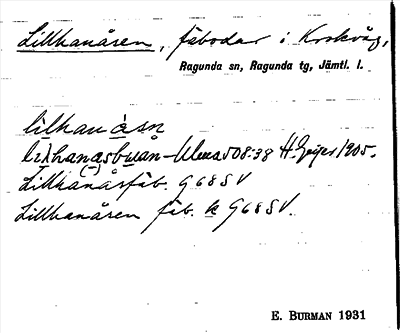 Lillhanåsen, fäbodar i Krokvåg,
Ragunda sn, Ragunda tg, Jämtl. l.
lilhan åsn
508:38 H. Geijer 1905.
Lillhanåsfäb. G68SV
Lillhanåsen fäb. k G68SV.
E. BURMAN 1931